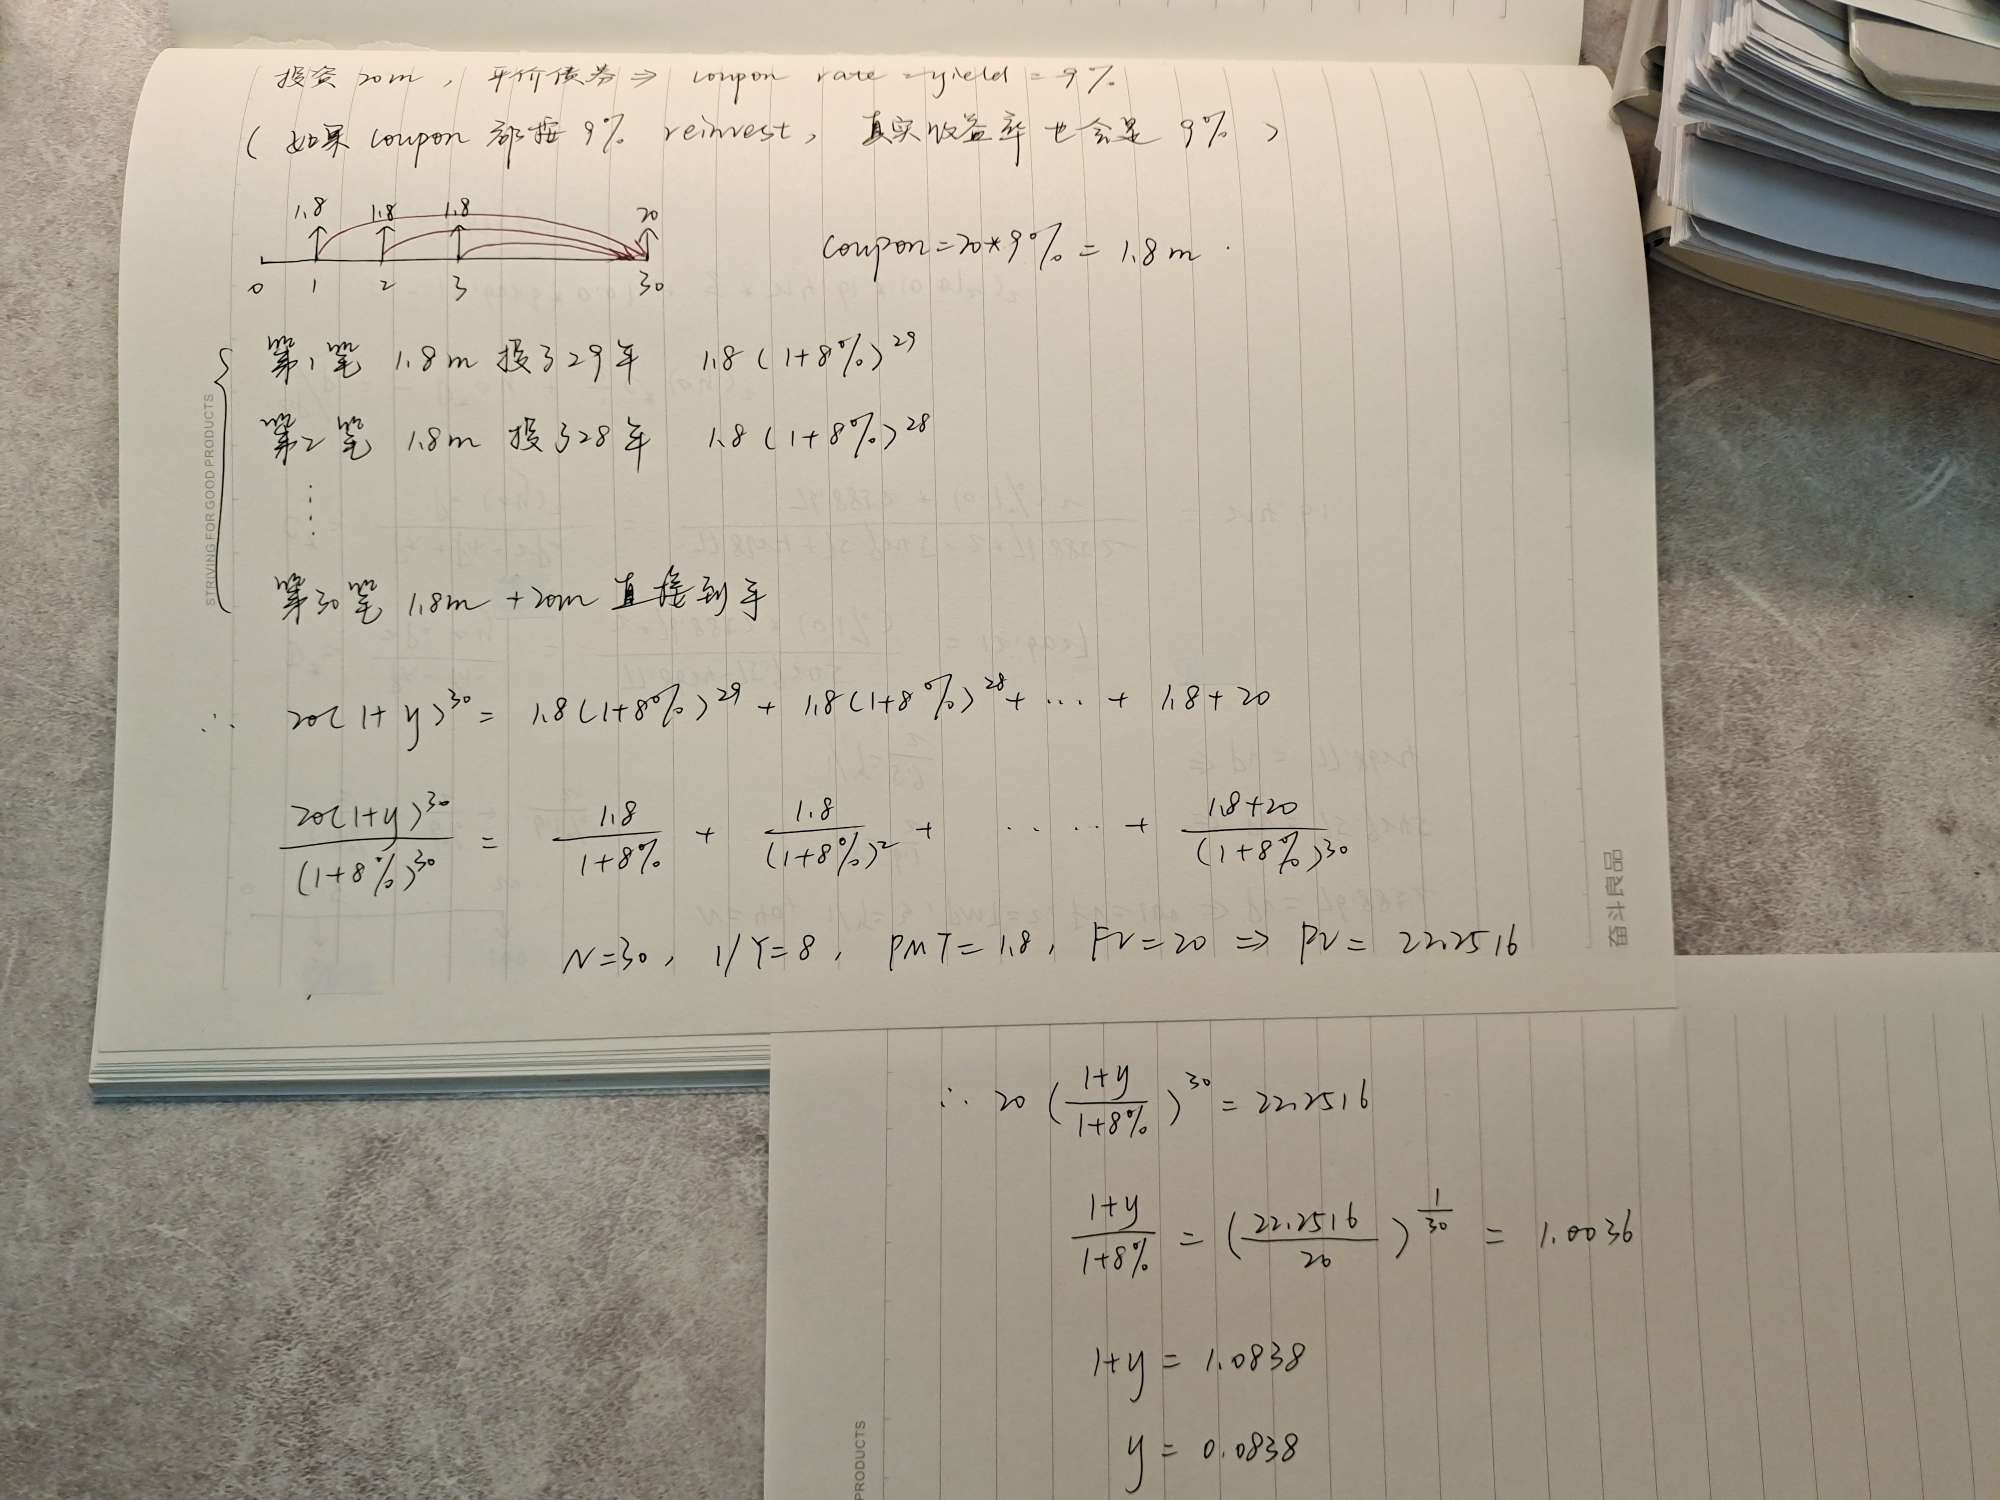 投资 20m , 平价债券 ⇒ coupon rate = yield = 9%
( 如果 coupon 都按 9% reinvest, 真实收益率也会是 9% )
1.8 1.8 1.8 20
0 1 2 3 30
coupon = 20*9% = 1.8m .
第1笔 1.8m 投了29年 1.8(1+8%)^29
第2笔 1.8m 投了28年 1.8(1+8%)^28
⋮
第30笔 1.8m + 20m 直接到手
∴ 20(1+y)^30 = 1.8(1+8%)^29 + 1.8(1+8%)^28 + ... + 1.8+20
20(1+y)^30 / (1+8%)^30 = 1.8 / 1+8% + 1.8 / (1+8%)^2 + ..... + 1.8+20 / (1+8%)^30
N=30, 1/Y=8, PMT=1.8, FV=20 ⇒ PV = 22.2516
∴ 20 (1+y / 1+8%)^30 = 22.2516
1+y / 1+8% = (22.2516 / 20)^1/30 = 1.0036
1+y = 1.0838
y = 0.0838
STRIVING FOR GOOD PRODUCTS
奋斗良品
PRODUCTS